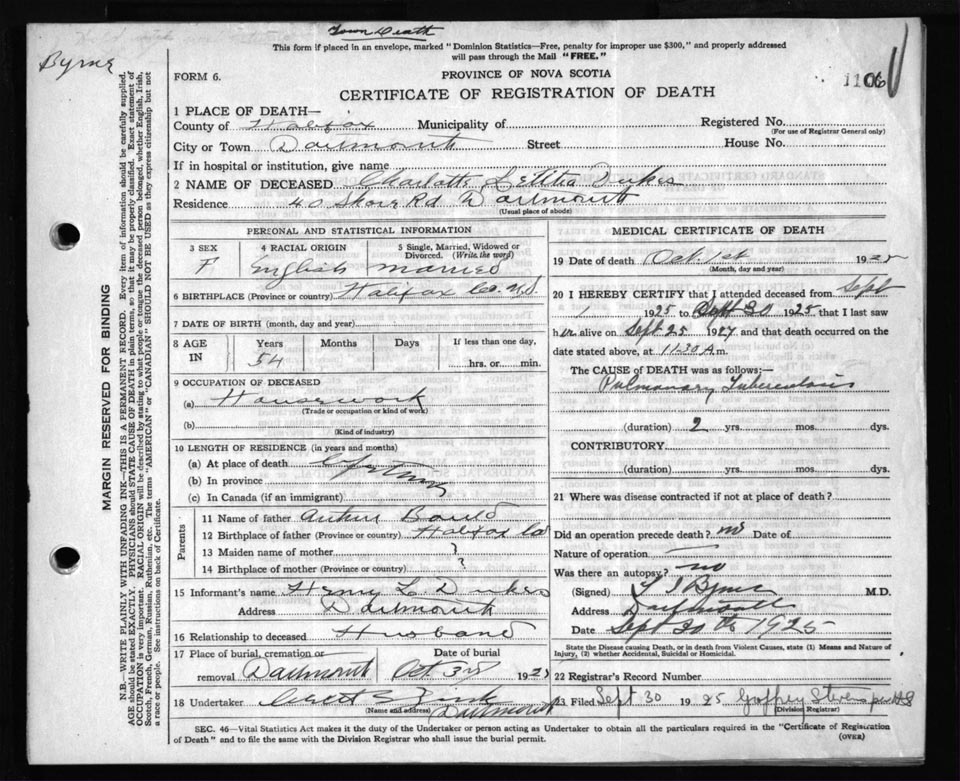 Town Death
This form if placed in an envelope, marked "Dominion Statistics—Free, penalty for improper use $300," and properly addressed
will pass through the Mail "FREE."
Byrne
FORM 6.
PROVINCE OF NOVA SCOTIA
1106
CERTIFICATE OF REGISTRATION OF DEATH
1 PLACE OF DEATH—
County of Halifax Municipality of Registered No.
(For use of Registrar General only)
City or Town Dartmouth Street House No.
If in hospital or institution, give name
2 NAME OF DECEASED Charlotte Letitia Dukes
Residence 40 Shore Rd Dartmouth
(Usual place of abode)
PERSONAL AND STATISTICAL INFORMATION
3 SEX 4 RACIAL ORIGIN 5 Single, Married, Widowed or
Divorced. (Write the word)
F English married
6 BIRTHPLACE (Province or country) Halifax Co. N.S.
7 DATE OF BIRTH (month, day and year)
8 AGE Years Months Days If less than one day,
IN 54 hrs. or min.
9 OCCUPATION OF DECEASED
(a) Housework
(Trade or occupation or kind of work)
(b)
(Kind of industry)
10 LENGTH OF RESIDENCE (in years and months)
(a) At place of death
(b) In province
(c) In Canada (if an immigrant)
Parents
11 Name of father Arthur Bould
12 Birthplace of father (Province or country) Halifax Co
13 Maiden name of mother ?
14 Birthplace of mother (Province or country) ?
15 Informant's name Henry L Dukes
Address Dartmouth
16 Relationship to deceased Husband
17 Place of burial, cremation or Date of burial
removal Dartmouth Oct 3rd 1925
18 Undertaker
(Name and address) Dartmouth
MEDICAL CERTIFICATE OF DEATH
19 Date of death Oct. 1st 1925
(Month, day and year)
20 I HEREBY CERTIFY that I attended deceased from Sept
1 1925 to Sept 30 1925, that I last saw
her alive on Sept 25 1927 and that death occurred on the
date stated above, at 11.30 A.m.
The CAUSE of DEATH was as follows:—
Pulmonary Tuberculosis
(duration) 2 yrs. mos. dys.
CONTRIBUTORY
(duration) yrs. mos. dys.
21 Where was disease contracted if not at place of death?
Did an operation precede death? no Date of
Nature of operation
Was there an autopsy? no
(Signed) Byrne M.D.
Address Dartmouth
Date Sept 30th 1925
State the Disease causing Death, or in death from Violent Causes, state (1) Means and Nature of
Injury, (2) whether Accidental, Suicidal or Homicidal.
22 Registrar's Record Number
23 Filed Sept 30 1925 Goffrey Stevens
(Division Registrar)
SEC. 46—Vital Statistics Act makes it the duty of the Undertaker or person acting as Undertaker to obtain all the particulars required in the "Certificate of Registration
of Death" and to file the same with the Division Registrar who shall issue the burial permit.
(OVER)
MARGIN RESERVED FOR BINDING
N.B.—WRITE PLAINLY WITH UNFADING INK—THIS IS A PERMANENT RECORD. Every item of information should be carefully supplied.
AGE should be stated EXACTLY. PHYSICIANS should STATE CAUSE OF DEATH in plain terms, so that it may be properly classified. Exact statement of
OCCUPATION is very important. RACIAL ORIGIN will be described by stating to what people or tongue the deceased person belonged, whether English, Irish,
Scotch, French, German, Russian, Ruthenian, etc. The terms "AMERICAN" or "CANADIAN" SHOULD NOT BE USED as they express citizenship but not
a race or people. See instructions on back of Certificate.